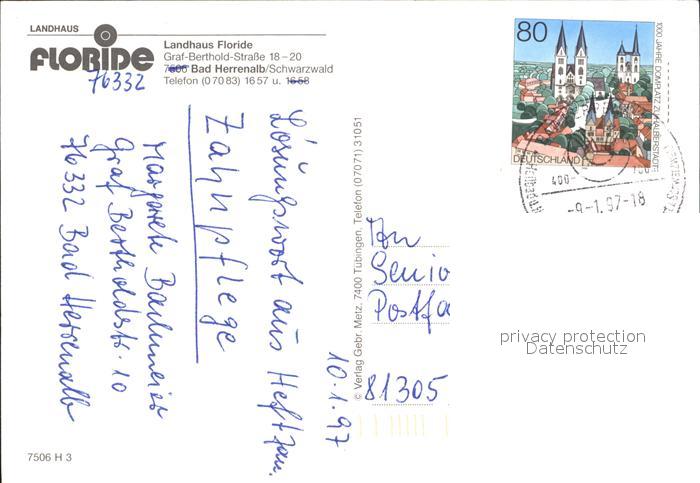 LANDHAUS
FLORIDE
Landhaus Floride
Graf-Berthold-Straße 18-20
7506 Bad Herrenalb/Schwarzwald
Telefon (07083) 1657 u. 1658
76332
Lösungswort aus Heft Jan.
Zahnpflege
Margarete
Graf Bertholdstr. 10
76332 Bad Herrenalb
10.1.97
© Verlag Gebr. Metz, 7400 Tübingen, Telefon (07071) 31051
80
1000 JAHRE DOMPLATZ ZU HALBERSTADT
DEUTSCHLAND
-9-1.97-18
An
Senio
Postfa
81305
privacy protection
Datenschutz
7506 H 3